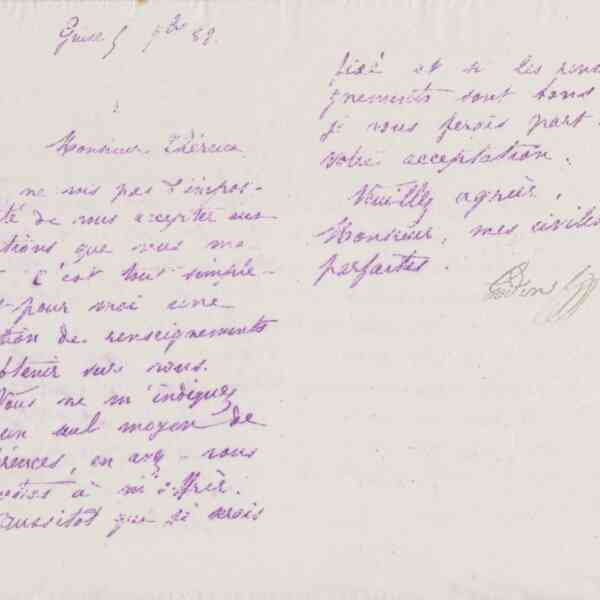 Guise 5 9bre 82.
Monsieur Théreux
ne suis pas l'impos-
té de vous accepter aux
tions que vous me
c'est tout simple-
pour moi une
tion de renseignements
btenir sur vous.
Vous ne m'indiquez
un seul moyen de
rences, en avez-vous
à m'offrir.
aussitot que je serais
fixé et si les rensei
gnements sont bons
je vous ferais part
votre acceptation.
Veuillez agréer,
Monsieur, mes civilit
parfaites.
Godin